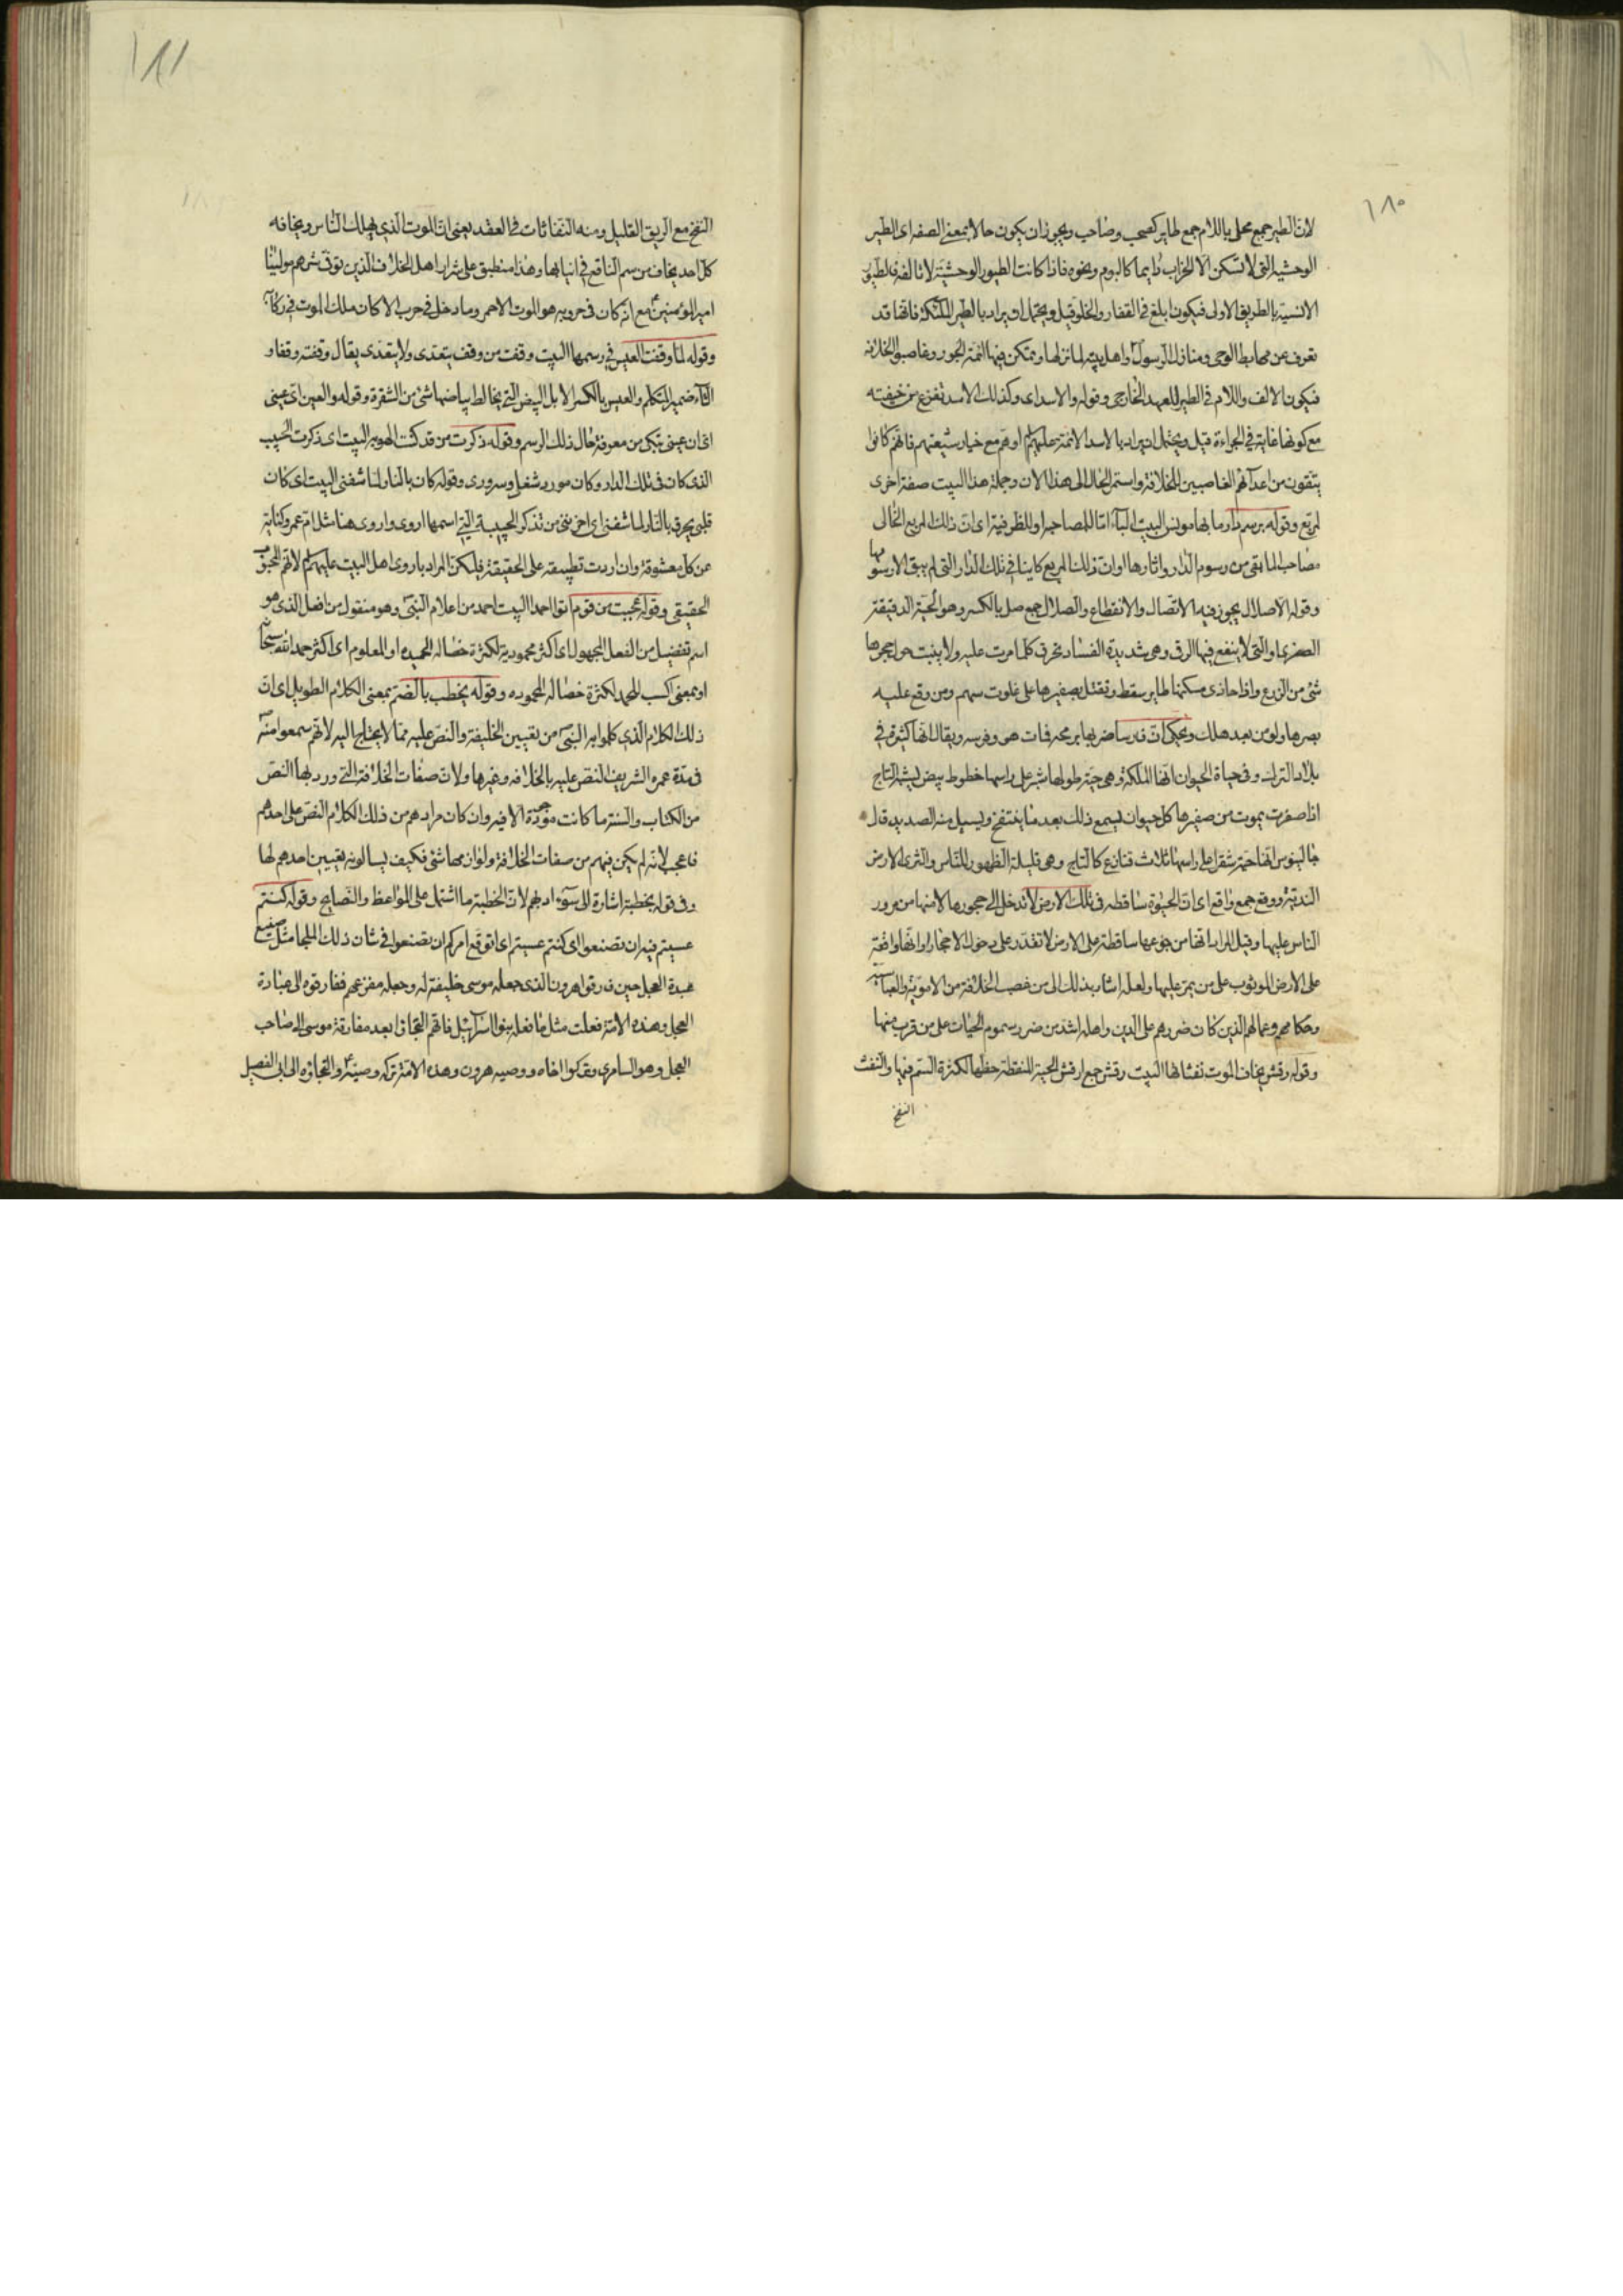 ١٨٠
لان الطير جمع محلى باللام جمع طاير كصحب وصاحب ويجوز ان يكون حالا بمعنى الصفه اى الطير
الوحشية التى لا تسكن الا الخراب دايما كالبوم ونحوه فاذا كانت الطيور الوحشية لا تالفه فالطيور
الانسية بالطريق الاولى فيكون ابلغ في القفار والخلو قيل ويحتمل ان يراد بالطير الملئكة فانها قد
تعرف عن مهابط الوحى ومنازل الرسول واهل بيته لما نزلها وتمكن فيها ائمة الجور وغاصبو الخلافة
فيكون الالف واللام في الطير للعهد الخارجى وقوله والاسد اى وكذلك الاسد تفزع من خيفته
مع كونها غاية في الجراءة قيل ويحتمل ان يراد بالاسد الائمة عليهم او هم مع خيار شيعتهم فانهم كانوا
يتقون من اعدائهم الغاصبين للخلافة واستمر الحال الى هذا الان وجملة هذا البيت صفة اخرى
لمربع وقوله برسم دار ما بها مونس البيت الباء اما للمصاحبة او للظرفية اى ان ذلك المربع الخالى
مصاحب لما بقى من رسوم الدار واثارها او ان ذلك المربع كاينا في تلك الدار التى لم يبق الا رسومها
وقوله الا صلال يجوز فيه الاتصال والانقطاع والصلال جمع صل بالكسر وهو الحية الدقيقة
الصفرى او التى لا ينفع فيها الرقى وهى شديدة الفساد تحرق كلما مرت عليه ولا ينبت حول جحرها
شئ من الزرع واذا حاذى مسكنها طاير سقط وتقتل بصفيرها على غلوت سهم ومن وقع عليه
بصرها ولو من بعد هلك ويحكى ان فارسا ضربها برمحه فمات هو وفرسه ويقال انها كثيرة في
بلاد الترك وفى حياة الحيوان انها الملكة وهى حية طولها شبر على راسها خطوط بيض يشبه التاج
اذا صفرت يموت من صفيرها كل حيوان يسمع ذلك بعد ما ينتفخ ويسيل منه الصديد قال
جالينوس انها حية شقرا على راسها ثلاث قنازع كالتاج وهى قليلة الظهور للناس والثرى الارض
الندية ووقع جمع واقع اى ان الحيوة ساقطه في تلك الارض لا تدخل الى حجورها لامنها من مرور
الناس عليها وقيل المراد انها من جوعها ساقطة على الارض لا تقدر على دخول الاحجار او انها واقعة
على الارض للوثوب على من يمر عليها ولعله اشار بذلك الى من غصب الخلافة من الاموية والعباسية
وحكامهم وعمالهم الذين كان ضررهم على الدين واهله اشد من ضرر سموم الحيات على من قرب منها
وقوله رقش يخاف الموت نفثاتها البيت رقش جمع ارقش الحية المنقطة حظها لكثرة السم فيها والنفث
النفخ
١٨١
النفخ مع الريق القليل ومنه النفاثات في العقد يعنى ان الموت الذى يهلك الناس ويخافه
كل احد يخاف من سم الناقع في انيابها وهذا منطبق على شرار اهل الخلاف الذين توقى شرهم مولينا
امير المؤمنين مع انه كان في حروبه هو الموت الاحمر وما دخل في حرب الا كان ملك الموت في ركابه
وقوله لما وقفت العيس في رسمها البيت وقفت من وقف يتعدى ولا يتعدى يقال وقفته وقفا و
التاء ضمير المتكلم والعيس بالكسر الابل البيض التى يخالط بياضها شئ من الشقرة وقوله والعين اى عينى
اى ان عينى تبكى من معرفة حال ذلك الرسم وقوله ذكرت من قد كنت الهو به البيت اى ذكرت الحبيب
الذى كان في تلك الدار وكان مورد شغلى وسرورى وقوله كان بالنار لما شفنى البيت اى كان
قلبى يحرق بالنار لما شفنى اى احزننى من تذكر الحبيبة التى اسمها اروى واروى هنا مثل ام عمرو كناية
عن كل معشوقة وان اردت تطبيقه على الحقيقة فليكن المراد باروى اهل البيت عليهم لانهم المحبوب
الحقيقى وقوله عجبت من قوم اتوا احمدا البيت احمد من اعلام النبى وهو منقول من افعل الذى هو
اسم تفضيل من الفعل المجهول اى اكثر محمودية لكثرة خصاله الحميده او المعلوم اى اكثر حمد الله سبحانه
او بمعنى اكسب للحمد لكثرة خصاله المحموده وقوله بخطب بالضم بمعنى الكلام الطويل اى ان
ذلك الكلام الذى كلموا به النبى من تعيين الخليفة والنص عليه مما لا يحتاج اليه لانهم سمعوا منه
في مدة عمره الشريف النص عليه بالخلافه وغيرها ولان صفات الخلافة التى ورد بها النص
من الكتاب والسنة ما كانت موجودة الا فيه وان كان مرادهم من ذلك الكلام النص على احدهم
فاعجب لانه لم يكن فيهم من صفات الخلافة ولوازمها شئ فكيف يسالونه تعيين احدهم لها
وفى قوله بخطبة اشارة الى سوء ادبهم لان الخطبة ما اشتمل على المواعظ والنصايح وقوله كنتم
عسيتم فيه ان تصنعوا اى كنتم عسيتم اى اتوقع امركم ان تصنعوا في شان ذلك الملجا مثل صنيع
عبدة العجل حين فارقوا هرون الذى جعله موسى خليفة له وجعله مفزعهم ففارقوه الى عبادة
العجل وهذه الامة فعلت مثل ما فعله بنو اسرائيل فانهم التجاوا بعد مفارقة موسى الى صاحب
العجل وهو السامرى وتركوا اخاه ووصيه هرون وهذه الامة تركه وصيه والتجاوه الى ابى الفصيل